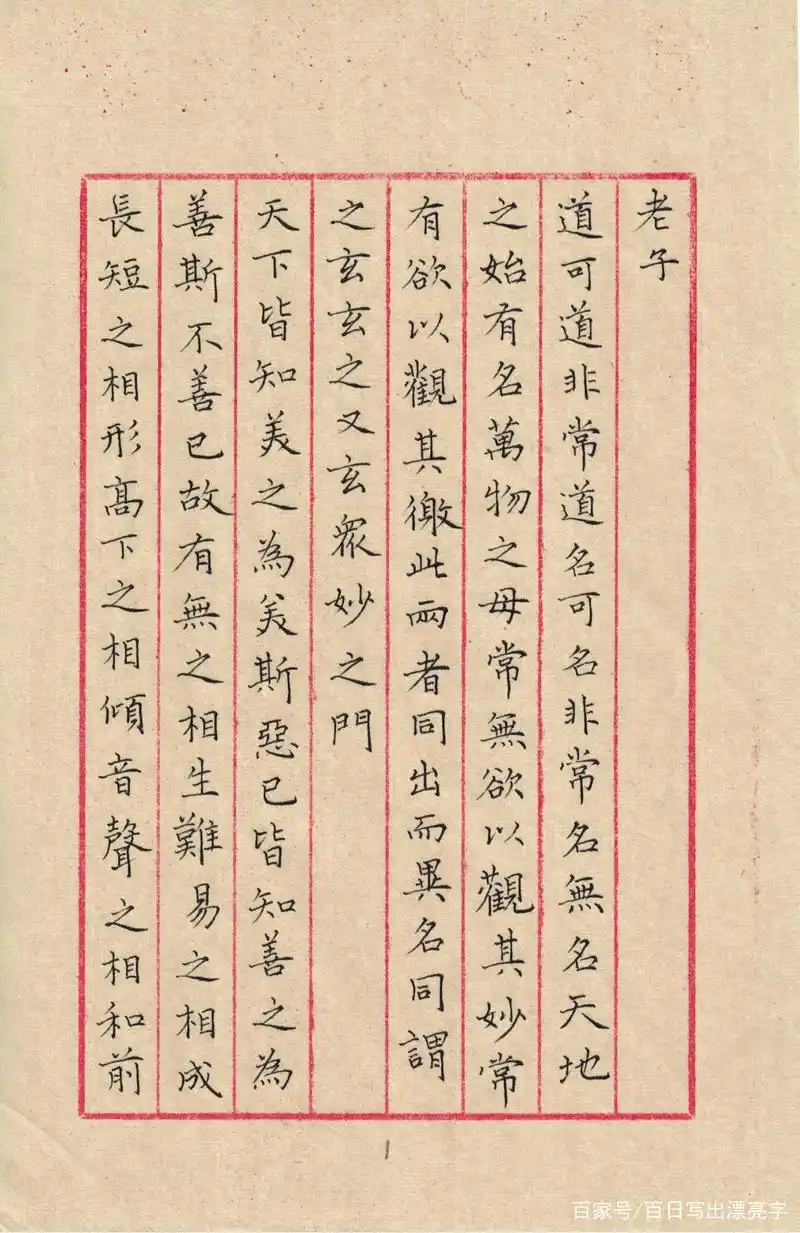 老子
道可道非常道名可名非常名無名天地
之始有名萬物之母常無欲以觀其妙常
有欲以觀其徼此兩者同出而異名同謂
之玄玄之又玄眾妙之門
天下皆知美之為美斯惡已皆知善之為
善斯不善已故有無之相生難易之相成
長短之相形高下之相傾音聲之相和前
1
百家号/百日写出漂亮字